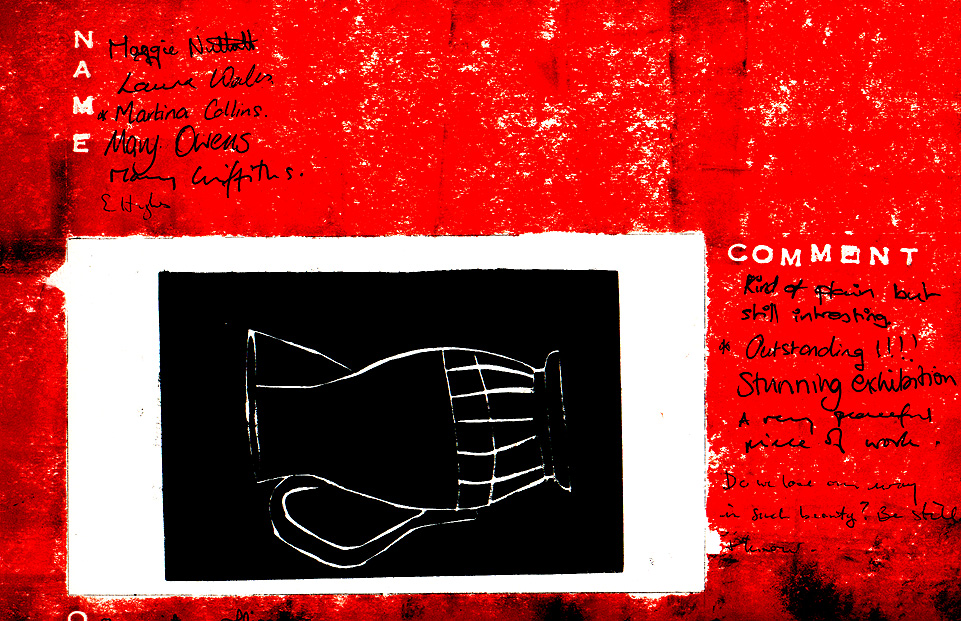 NAME
Maggie Nuttall
Laura Wales
* Martina Collins.
Mary Owens
Mary Griffiths.
E Hughes
COMMENT
Kind of plain but
still intresting
* Outstanding !!!!
Stunning exhibition
A very peaceful
piece of work.
Do we lose our way
in such beauty? Be still